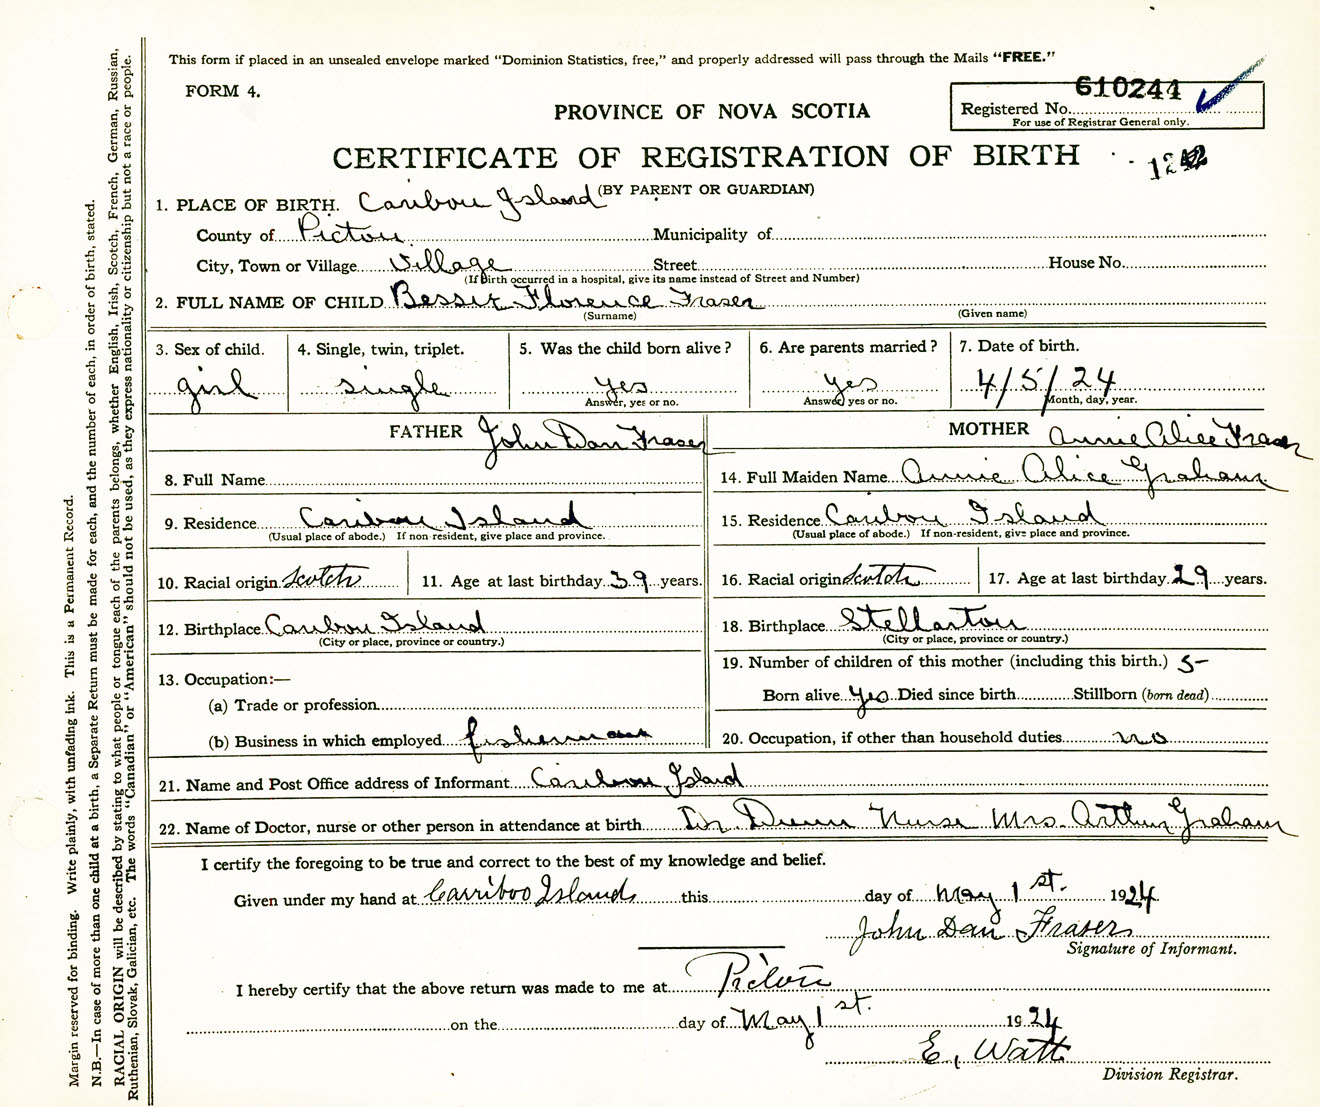 This form if placed in an unsealed envelope marked "Dominion Statistics, free," and properly addressed will pass through the Mails "FREE."
FORM 4.
610244
Registered No.
For use of Registrar General only.
PROVINCE OF NOVA SCOTIA
CERTIFICATE OF REGISTRATION OF BIRTH
(BY PARENT OR GUARDIAN)
1. PLACE OF BIRTH. Caribou Island
County of Pictou Municipality of
City, Town or Village Village Street House No.
(If Birth occurred in a hospital, give its name instead of Street and Number)
2. FULL NAME OF CHILD Bessie Florence Fraser
(Surname) (Given name)
3. Sex of child. 4. Single, twin, triplet. 5. Was the child born alive? 6. Are parents married? 7. Date of birth.
girl single yes yes 4/5/24
Answer, yes or no. Answer, yes or no. Month, day, year.
FATHER John Dan Fraser MOTHER Annie Alice Fraser
8. Full Name 14. Full Maiden Name Annie Alice Graham
9. Residence Caribou Island 15. Residence Caribou Island
(Usual place of abode.) If non-resident, give place and province. (Usual place of abode.) If non-resident, give place and province.
10. Racial origin Scotch 11. Age at last birthday 39 years. 16. Racial origin Scotch 17. Age at last birthday 29 years.
12. Birthplace Caribou Island 18. Birthplace Stellarton
(City or place, province or country.) (City or place, province or country.)
19. Number of children of this mother (including this birth.) 5-
13. Occupation:—
Born alive yes Died since birth Stillborn (born dead)
(a) Trade or profession
(b) Business in which employed fisherman 20. Occupation, if other than household duties no
21. Name and Post Office address of Informant Caribou Island
22. Name of Doctor, nurse or other person in attendance at birth Dr. Dunn Nurse Mrs. Arthur Graham
I certify the foregoing to be true and correct to the best of my knowledge and belief.
Given under my hand at Carriboo Islands this day of May 1st. 1924
John Dan Fraser
Signature of Informant.
I hereby certify that the above return was made to me at Pictou
on the day of May 1st. 1924
E. Watt
Division Registrar.
Margin reserved for binding. Write plainly, with unfading ink. This is a Permanent Record.
N.B.—In case of more than one child at a birth, a Separate Return must be made for each, and the number of each, in order of birth, stated.
RACIAL ORIGIN will be described by stating to what people or tongue each of the parents belongs, whether English, Irish, Scotch, French, German, Russian,
Ruthenian, Slovak, Galician, etc. The words "Canadian" or "American" should not be used, as they express nationality or citizenship but not a race or people.